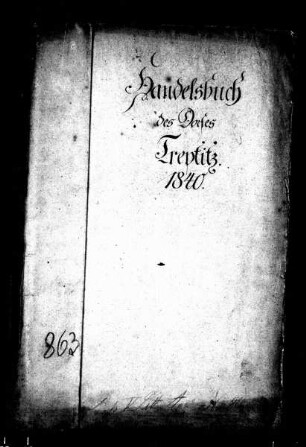 Handelsbuch
des Dorfes
Treptitz.
1840.
863